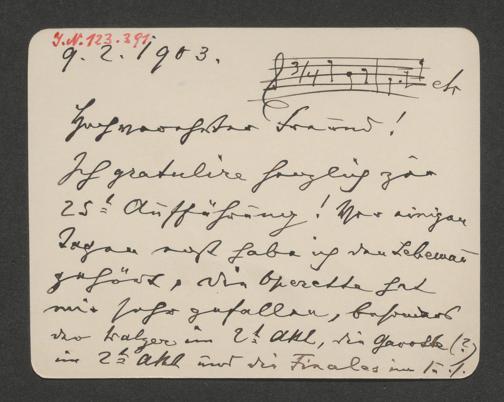 I.N. 123.391
9. 2. 1903.
3/4 etc
Hochverehrter Freund!
Ich gratulire herzlich zur
25t Aufführung! Vor einigen
Tagen erst habe ich den Lebemann
gehört, die Operette hat
mir sehr gefallen, besonders
der Walzer im 2t Akt, die Gavotte (?)
im 2t Akt und die Finales im I. u.